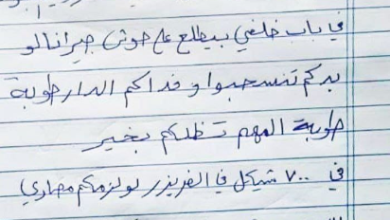 في باب خلفي بيطلع ع حوش جيرانا لو
بدكم تنسحبوا وفداكم الدار طوبة
طوبة المهم تظلكم بخير
في ٧٠٠ شيكل في الفريزر لو لزمكم مصاري